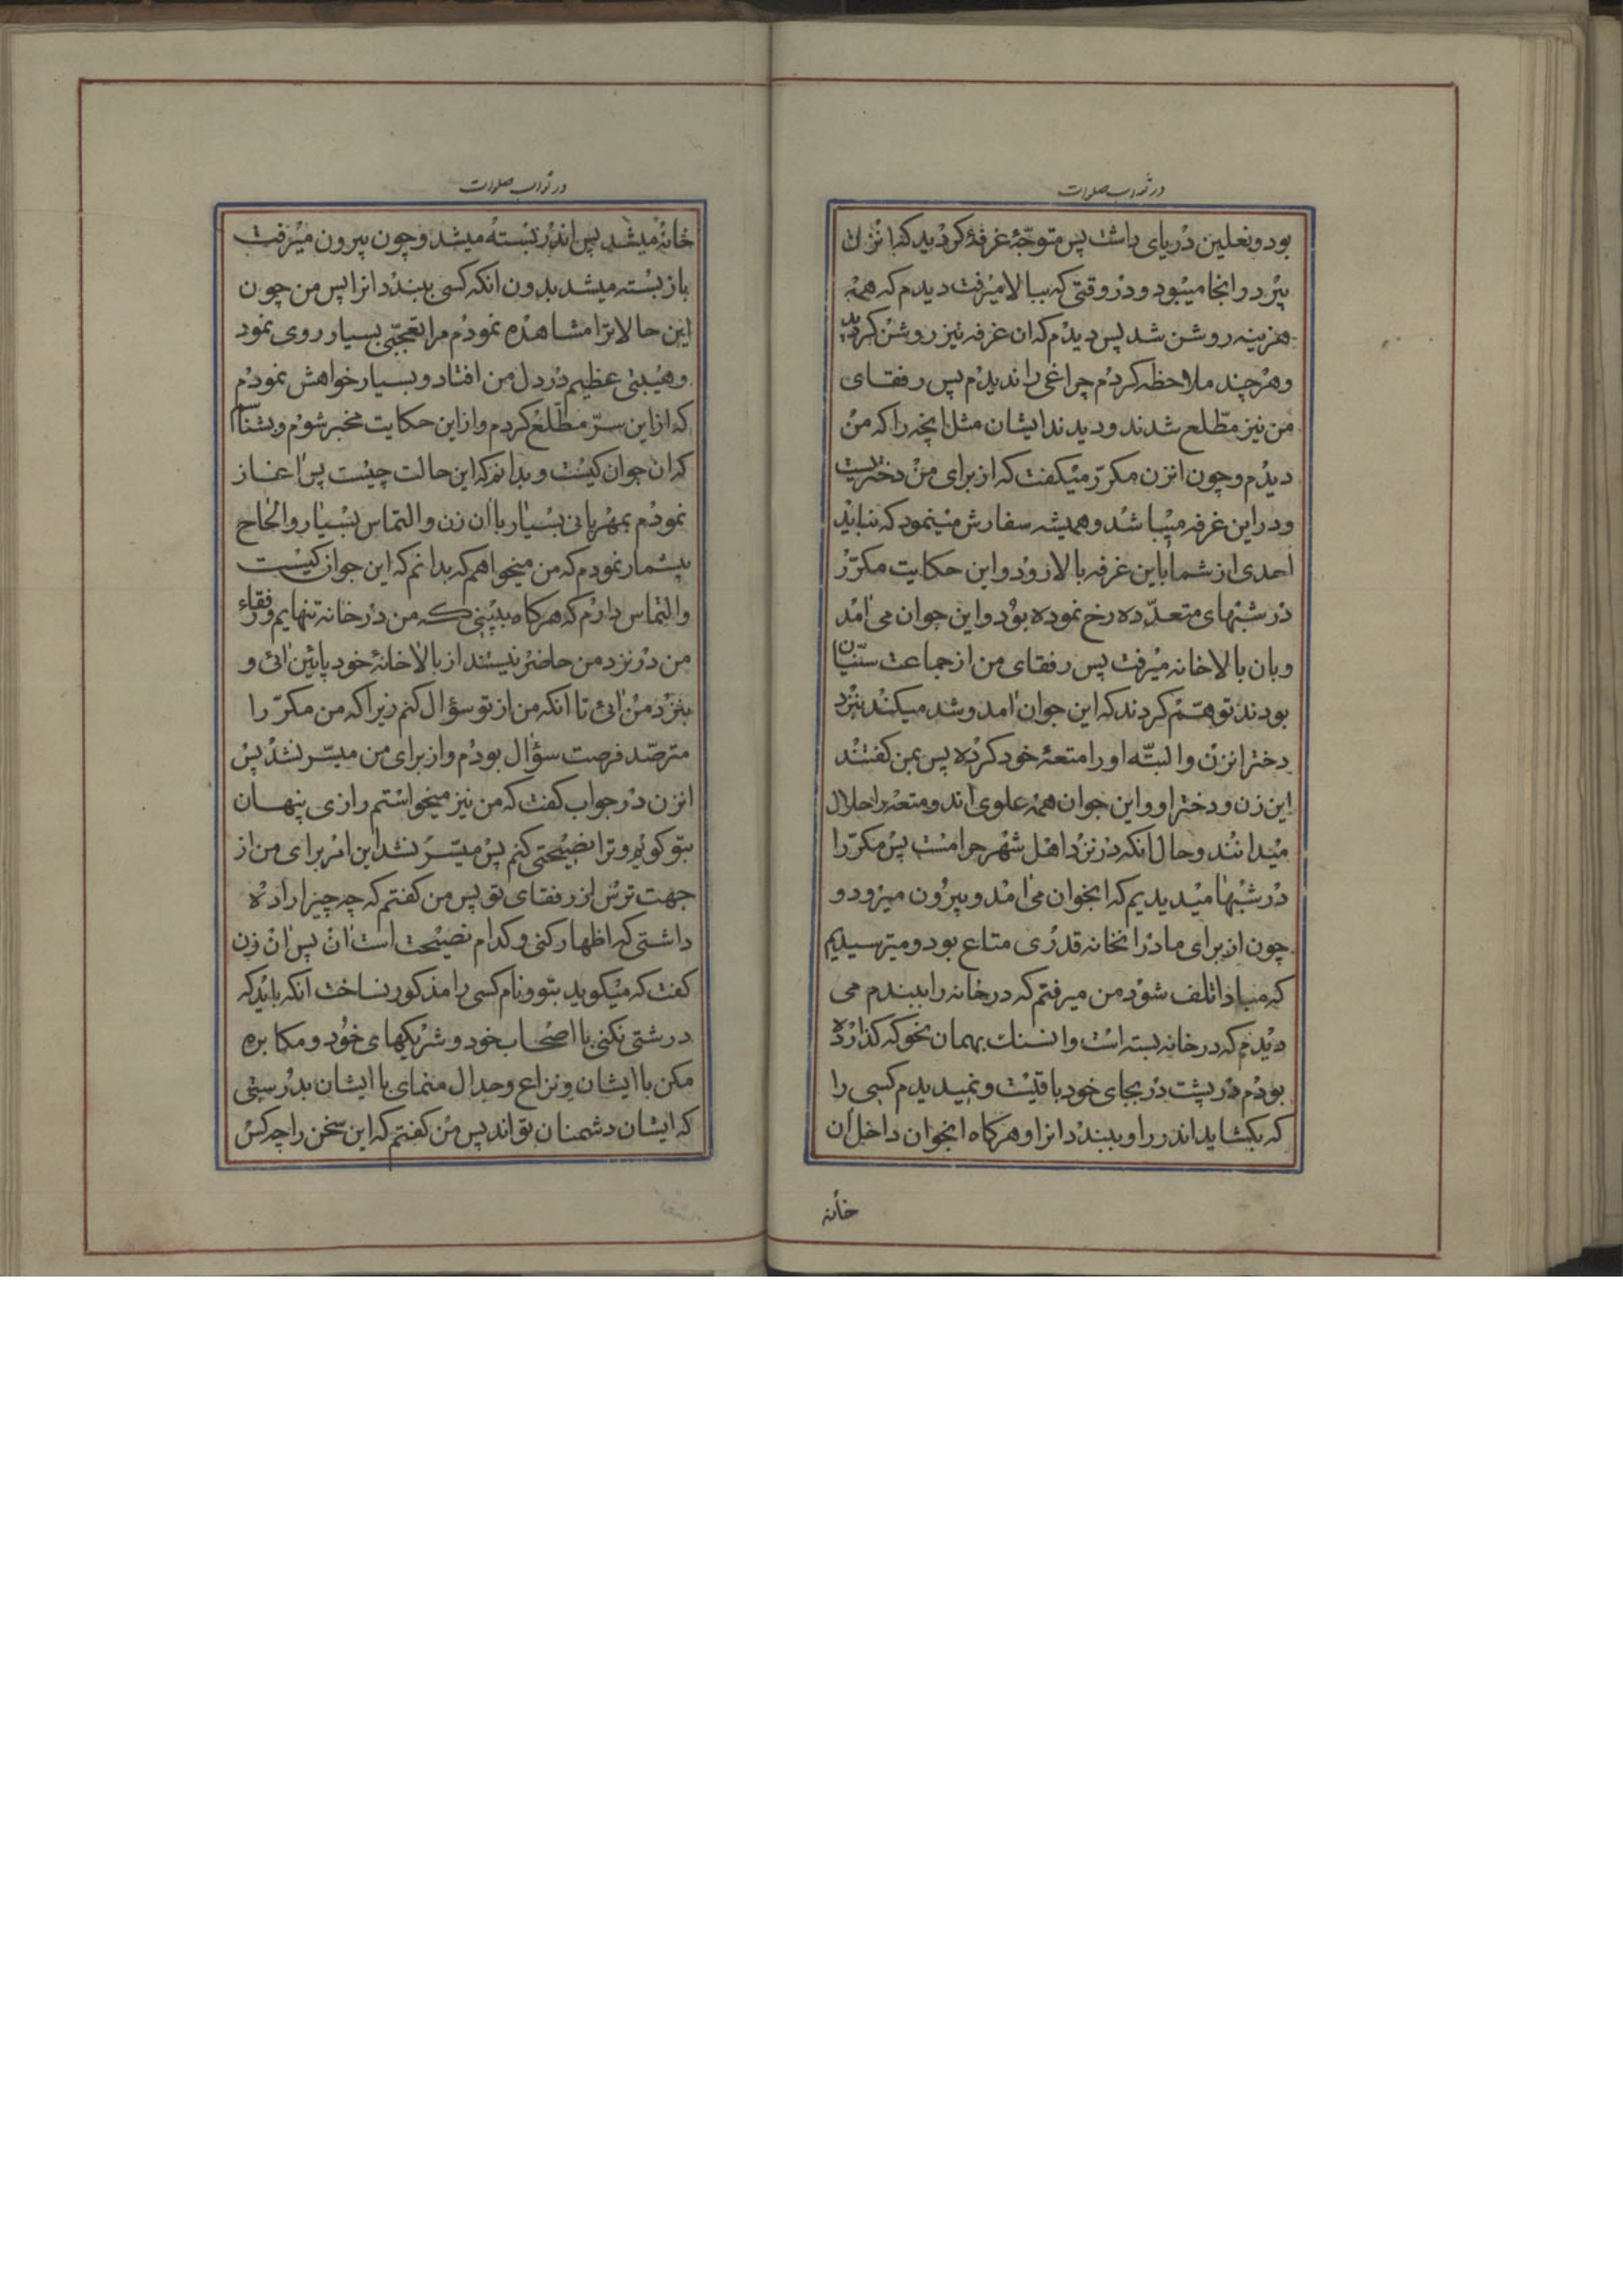 در ثواب صلوات
بود و نعلین در پای داشت پس متوجّهٔ غرفهٔ کردید که انزن
پیر در انجا میبود و در وقتی که ببالا میرفت دیدم که همه
هزینه روشن شد پس دیدم که ان غرفه نیز روشن کردید
و هر چند ملاحظه کردم چراغی را ندیدم پس رفقای
من نیز مطّلع شدند و دیدند ایشان مثل انچه را که من
دیدم و چون انزن مکرّر میکفت که از برای من دختریست
و در این غرفه میباشد و همیشه سفارش مینمود که نباید
احدی از شما باین غرفه بالا رود و این حکایت مکرّر
در شبهای متعدّده رخ نموده بود و این جوان می امد
و بان بالاخانه میرفت پس رفقای من از جماعت سنّیان
بودند توهّم کردند که این جوان امد و شد میکند بنزد
دختر انزن و البتّه او را متعهٔ خود کرده پس بمن کفتند
این زن و دختر او و این جوان همه علوی اند و متعه را حلال
میدانند و حال انکه در نزد اهل شهر حرامست پس مکرّرا
در شبها میدیدیم که انجوان می امد و بیرون میرود و
چون از برای ما در انخانه قدری متاع بود و میترسیدیم
که مبادا تلف شود من میرفتم که در خانه را ببندم می
دیدم که در خانه بسته است و ان سنک بهمان نحو که کذارده
بودم در پشت در بجای خود باقیست و نمیدیدم کسی را
که بکشاید اندر را و ببندد انرا و هرکاه انجوان داخل ان
خانه
در ثواب صلوات
خانه میشد پس اندر بسته میشد و چون بیرون میرفت
باز بسته میشد بدون انکه کسی ببندد انرا پس من چون
این حالاترا مشاهده نمودم مرا تعجّبی بسیار روی نمود
و هیبتی عظیم در دل من افتاد و بسیار خواهش نمودم
که از این سرّ مطّلع کردم و از این حکایت مخبر شوم و بشناسم
که ان جوان کیست و بدانم که این حالت چیست پس اغاز
نمودم بمهربانی بسیار با ان زن و التماس بسیار و الحاح
بیشمار نمودم که من میخواهم که بدانم که این جوان کیست
و التماس دارم که هرکاه ببینی که من در خانه تنهایم و رفقاء
من در نزد من حاضر نیستند از بالاخانهٔ خود پائین ائی و
بنزد من ائی تا انکه من از تو سؤال کنم زیرا که من مکرّر را
مترصّد فرصت سؤال بودم و از برای من میسّر نشد پس
انزن در جواب کفت که من نیز میخواستم رازی پنهان
بتو کویم و ترا نصیحتی کنم پس میسّر نشد این امر برای من از
جهت ترس از رفقای تو پس من کفتم که چه چیز اراده
داشتی که اظهار کنی و کدام نصیحت است ان پس ان زن
کفت که میکوید بتو و نام کسی را مذکور نساخت انکه باید که
درشتی نکنی با اصحاب خود و شریکهای خود و مکابره
مکن با ایشان و نزاع و جدال منمای با ایشان بدرستی
که ایشان دشمنان تو اند پس من کفتم که این سخن را چه کس